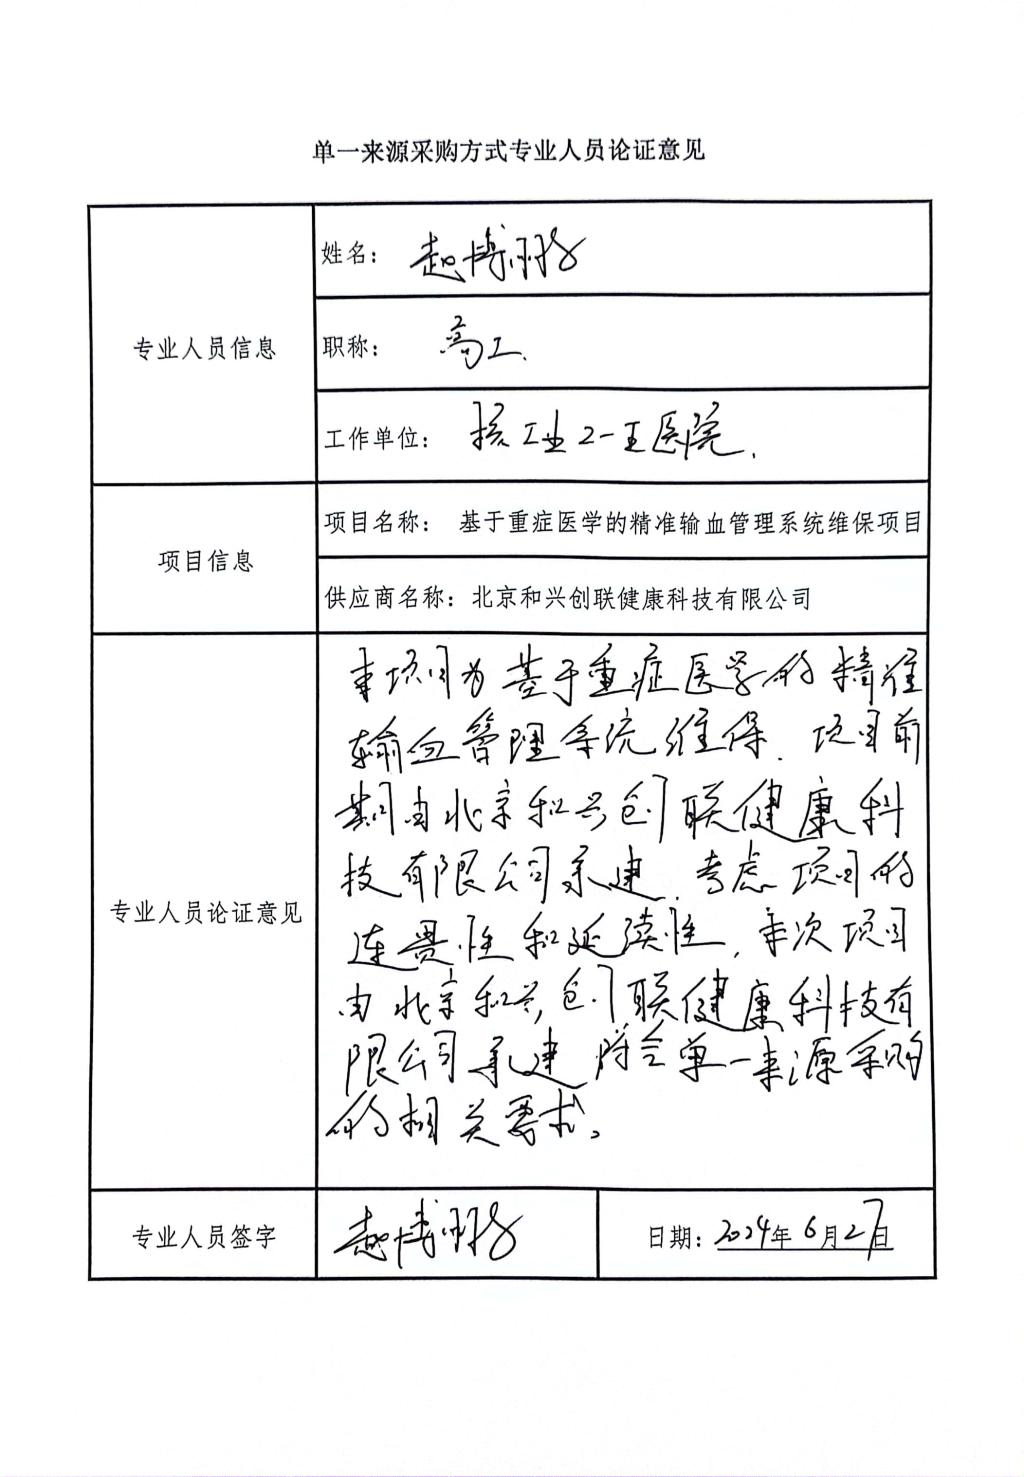 单一来源采购方式专业人员论证意见
专业人员信息
姓名： 赵博鹏
职称： 高工.
工作单位： 核工业215医院.
项目信息
项目名称： 基于重症医学的精准输血管理系统维保项目
供应商名称：北京和兴创联健康科技有限公司
专业人员论证意见
本项目为基于重症医学的精准
输血管理系统维保. 项目前
期由北京和兴创联健康科
技有限公司承建. 考虑项目的
连贯性和延续性, 本次项目
由北京和兴创联健康科技有
限公司承建 符合单一来源采购
的相关要求。
专业人员签字
赵博鹏
日期：2024年6月27日